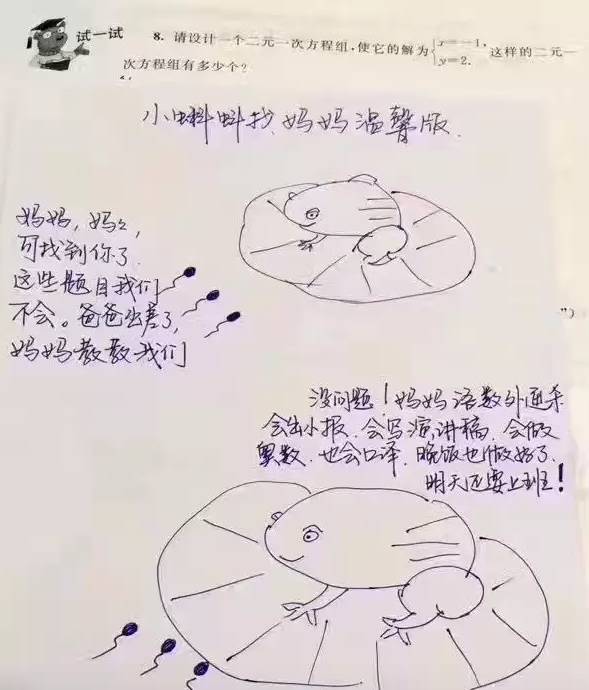 试一试
8. 请设计一个二元一次方程组，使它的解为{x=-1, y=2. 这样的二元一
次方程组有多少个？
小蝌蚪找妈妈温馨版.
妈妈，妈妈，
可找到你了.
这些题目我们
不会。爸爸出差了，
妈妈教教我们
")
没问题！妈妈语数外通杀
会出小报. 会写演讲稿. 会做
奥数. 也会口译. 晚饭也做好了.
明天还要上班！